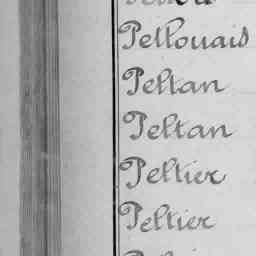 Pellouais
Peltan
Peltan
Peltier
Peltier